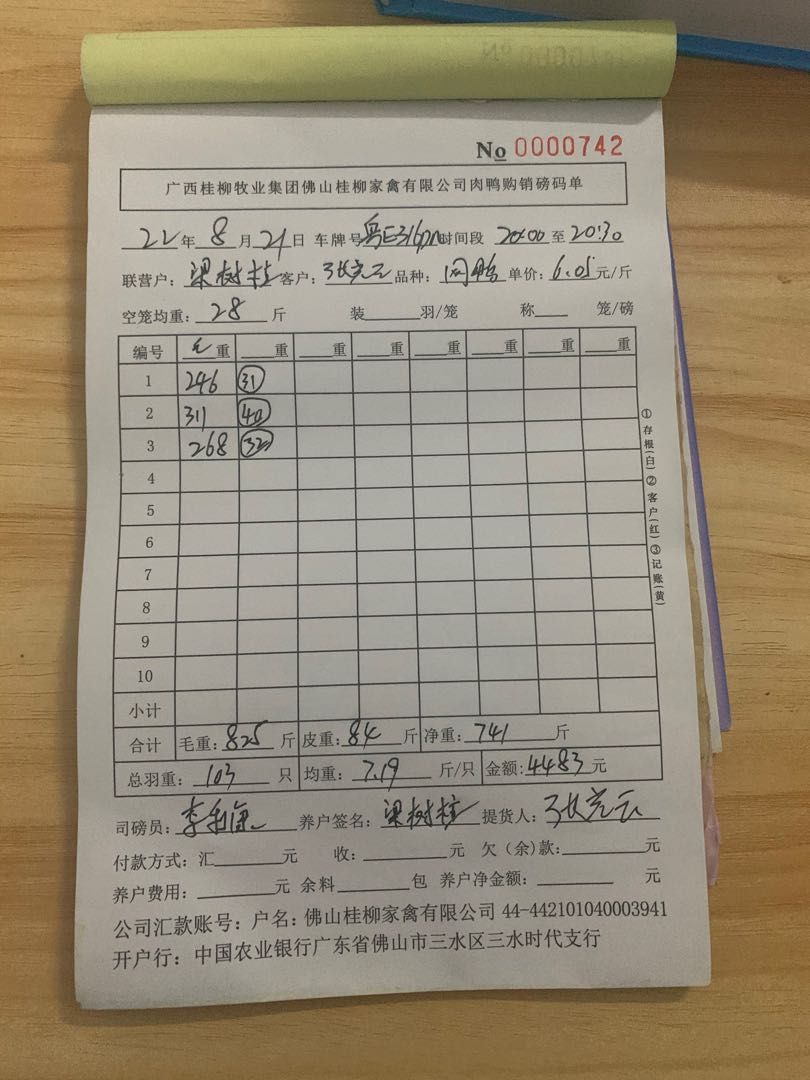 No 0000742
广西桂柳牧业集团佛山桂柳家禽有限公司肉鸭购销磅码单
22年8月21日 车牌号 粤E316 时间段 20:00 至 20:30
联营户：梁树桂 客户：张 品种： 单价：6.05元/斤
空笼均重：28斤 装 羽/笼 称 笼/磅
编号 毛重 重 重 重 重 重 重 重
1 246 31
2 311 40
3 268 32
4
5
6
7
8
9
10
小计
合计 毛重：825斤 皮重：84斤 净重：741斤
总羽重：103只 均重：7.19斤/只 金额：4483元
司磅员：李 养户签名：梁树桂 提货人：张
付款方式：汇 元 收： 元 欠（余）款： 元
养户费用： 元 余料 包 养户净金额： 元
公司汇款账号：户名：佛山桂柳家禽有限公司 44-442101040003941
开户行：中国农业银行广东省佛山市三水区三水时代支行
①存根(白)②客户(红)③记账(黄)